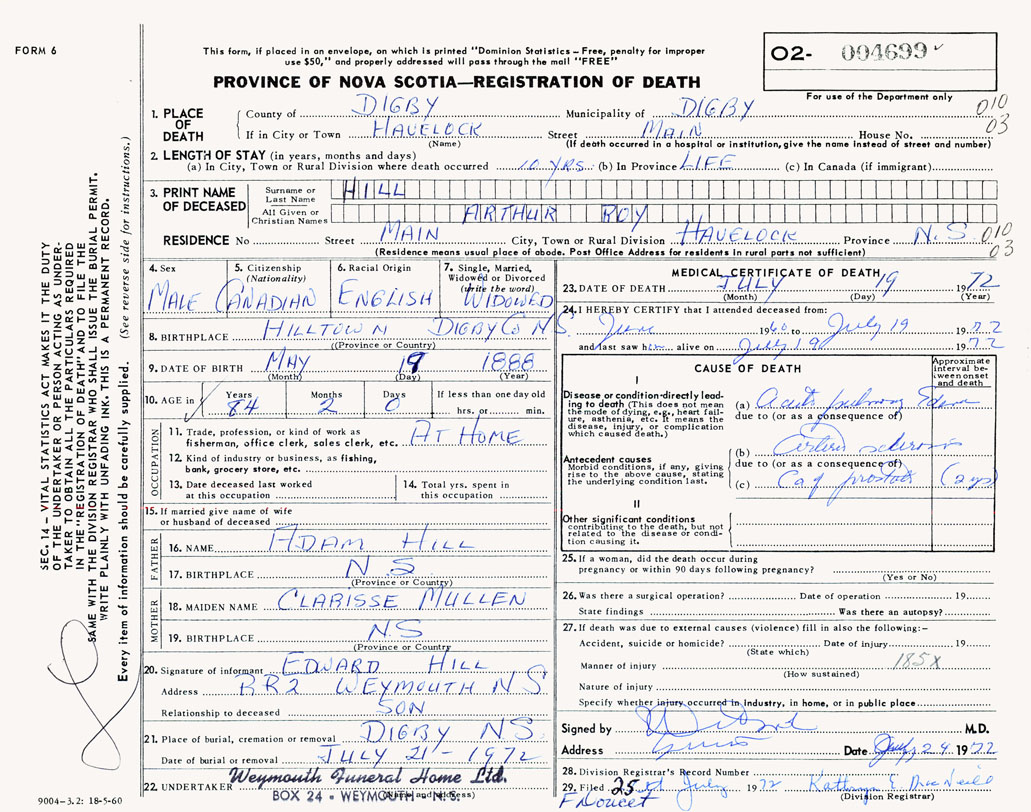 FORM 6
This form, if placed in an envelope, on which is printed "Dominion Statistics – Free, penalty for improper
use $50," and properly addressed will pass through the mail "FREE"
PROVINCE OF NOVA SCOTIA—REGISTRATION OF DEATH
O2- 004699 ✓
For use of the Department only
SEC. 14 – VITAL STATISTICS ACT MAKES IT THE DUTY
OF THE UNDERTAKER OR PERSON ACTING AS UNDER-
TAKER TO OBTAIN ALL THE PARTICULARS REQUIRED
IN THE "REGISTRATION OF DEATH" AND TO FILE THE
SAME WITH THE DIVISION REGISTRAR WHO SHALL ISSUE THE BURIAL PERMIT.
WRITE PLAINLY WITH UNFADING INK. THIS IS A PERMANENT RECORD.
Every item of information should be carefully supplied. (See reverse side for instructions.)
1. PLACE OF DEATH
County of DIGBY Municipality of DIGBY 010
If in City or Town HAVELOCK Street MAIN House No. 03
(Name) (If death occurred in a hospital or institution, give the name instead of street and number)
2. LENGTH OF STAY (in years, months and days)
(a) In City, Town or Rural Division where death occurred 10 YRS. (b) In Province LIFE (c) In Canada (if immigrant)
3. PRINT NAME OF DECEASED
Surname or Last Name HILL
All Given or Christian Names ARTHUR ROY
RESIDENCE No Street MAIN City, Town or Rural Division HAVELOCK Province N.S. 010
(Residence means usual place of abode. Post Office Address for residents in rural parts not sufficient) 03
4. Sex MALE
5. Citizenship (Nationality) CANADIAN
6. Racial Origin ENGLISH
7. Single, Married, Widowed or Divorced (write the word) WIDOWED
8. BIRTHPLACE HILLTOWN DIGBY CO N.S.
(Province or Country)
9. DATE OF BIRTH MAY 19 1888
(Month) (Day) (Year)
10. AGE in Years 84 Months 2 Days 0 If less than one day old
hrs. or min.
OCCUPATION
11. Trade, profession, or kind of work as
fishermen, office clerk, sales clerk, etc. AT HOME
12. Kind of industry or business, as fishing,
bank, grocery store, etc.
13. Date deceased last worked
at this occupation
14. Total yrs. spent in
this occupation
15. If married give name of wife
or husband of deceased
FATHER
16. NAME ADAM HILL
17. BIRTHPLACE N S
(Province or Country)
MOTHER
18. MAIDEN NAME CLARISSE MULLEN
19. BIRTHPLACE N.S
(Province or Country)
20. Signature of informant EDWARD HILL
Address RR2 WEYMOUTH N S
Relationship to deceased SON
21. Place of burial, cremation or removal DIGBY N.S.
Date of burial or removal JULY 21 - 1972
22. UNDERTAKER Weymouth Funeral Home Ltd.
(Name and address)
BOX 24 - WEYMOUTH N. S.
9004-3.2: 18-5-60
MEDICAL CERTIFICATE OF DEATH
23. DATE OF DEATH JULY 19 1972
(Month) (Day) (Year)
24. I HEREBY CERTIFY that I attended deceased from:
June 1960 to July 19 1972
and last saw him alive on July 19 1972
CAUSE OF DEATH
Approximate interval between onset and death
I
Disease or condition directly leading to death (This does not mean
the mode of dying, e.g., heart failure, asthenia, etc. It means the
disease, injury, or complication
which caused death.)
(a) Acute pulmonary Edema
due to (or as a consequence of)
Antecedent causes
Morbid conditions, if any, giving
rise to the above cause, stating
the underlying condition last.
(b)
due to (or as a consequence of)
(c) Ca of prostate
II
Other significant conditions
contributing to the death, but not
related to the disease or condition causing it.
25. If a woman, did the death occur during
pregnancy or within 90 days following pregnancy?
(Yes or No)
26. Was there a surgical operation? Date of operation 19
State findings Was there an autopsy?
27. If death was due to external causes (violence) fill in also the following:–
Accident, suicide or homicide? Date of injury 19
(State which)
Manner of injury 185X
(How sustained)
Nature of injury
Specify whether injury occurred in industry, in home, or in public place
Signed by M.D.
Address Date July 24 1972
28. Division Registrar's Record Number
29. Filed 25 July 1972
F Doucet (Division Registrar)